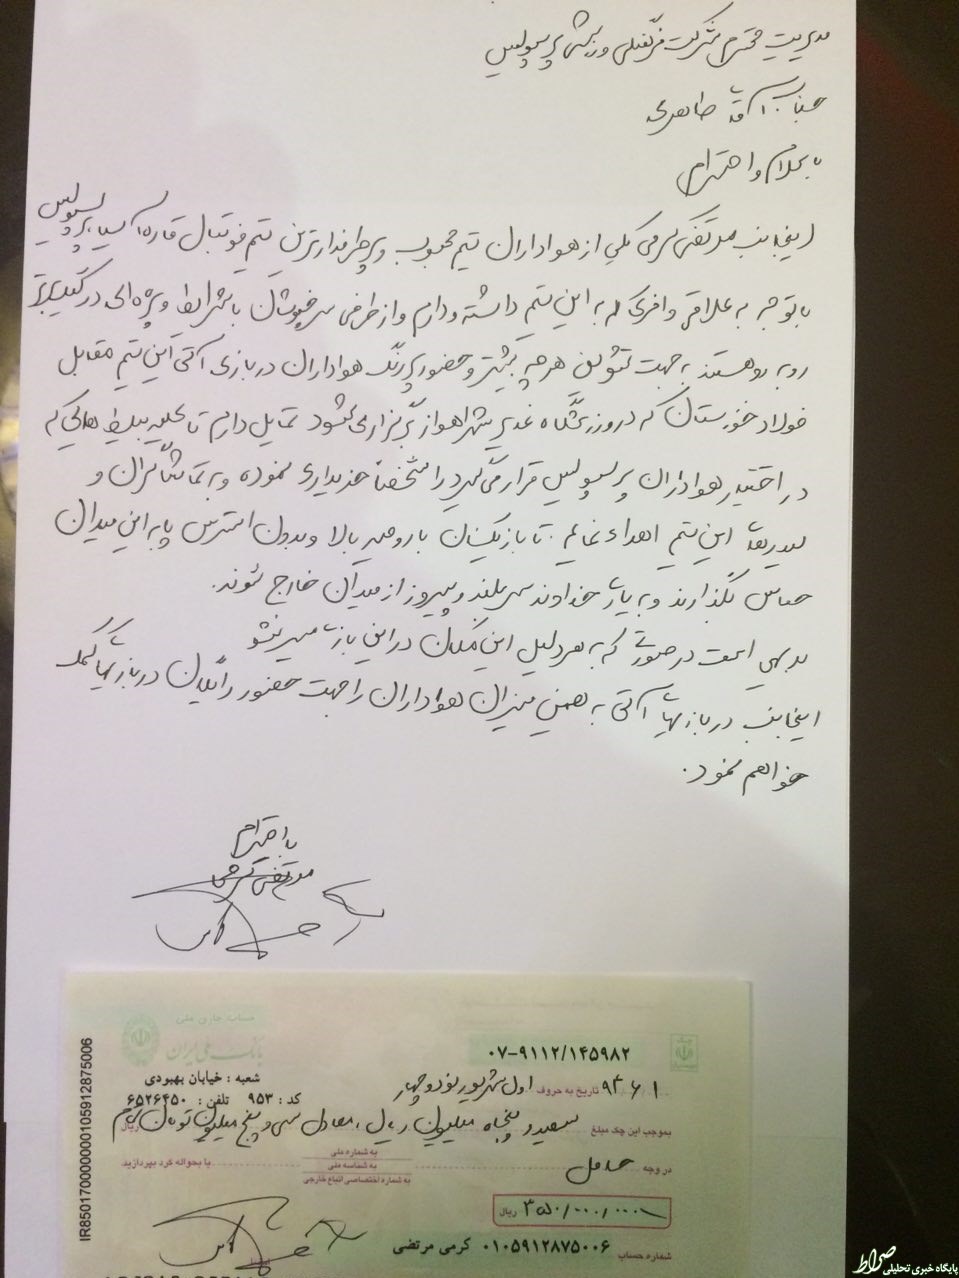 مدیریت محترم شرکت فرهنگی ورزشی پرسپولیس
جناب آقای طاهری
با سلام و احترام
اینجانب مرتضی کرمی یکی از هواداران تیم محبوب و پرطرفدارترین تیم فوتبال قاره آسیا، پرسپولیس
با توجه به علاقه وافری که به این تیم داشته و دارم و از طرفی سرخپوشان با شرایط ویژه‌ای در لیگ برتر
روبه رو هستند به جهت تشویق هر چه بیشتر و حضور پررنگ هواداران در بازی آتی این تیم مقابل
فولاد خوزستان که در ورزشگاه غدیر شهر اهواز برگزار می‌شود تمایل دارم تا کلیه بلیط هایی که
در اختیار هواداران پرسپولیس قرار می‌گیرد را شخصاً خریداری نموده و به تماشاگران و
لیدرهای این تیم اهداء نمایم. تا بازیکنان با روحیه بالا و بدون استرس پا به این میدان
حساس بگذارند و به یاری خداوند سربلند و پیروز از میدان خارج شوند.
بدیهی است در صورتی که به هر دلیل این امکان در این بازی میسر نشود
اینجانب در بازیهای آتی به همین میزان هواداران را جهت حضور رایگان در بازیها کمک
خواهم نمود.
با احترام
مرتضی کرمی
حساب جاری ملی
بانک ملی ایران
شعبه : خیابان بهبودی
کد : ۹۵۳ تلفن : ۶۵۲۶۴۵۰
۰۷-۹۱۱۲/۱۴۵۹۸۲
۹۴/۶/۱ تاریخ به حروف اول شهریور نود و چهار
بموجب این چک مبلغ سیصد و پنجاه میلیون ریال، معادل سی و پنج میلیون تومان تمام ریال
در وجه حامل
به شماره ملی
به شناسه ملی
به شماره اختصاصی اتباع خارجی
یا بحواله کرد بپردازید
۳۵۰/۰۰۰/۰۰۰ ریال
شماره حساب ۰۱۰۵۹۱۲۸۷۵۰۰۶ کرمی مرتضی
IR850170000000105912875006
صراط
پایگاه خبری تحلیلی